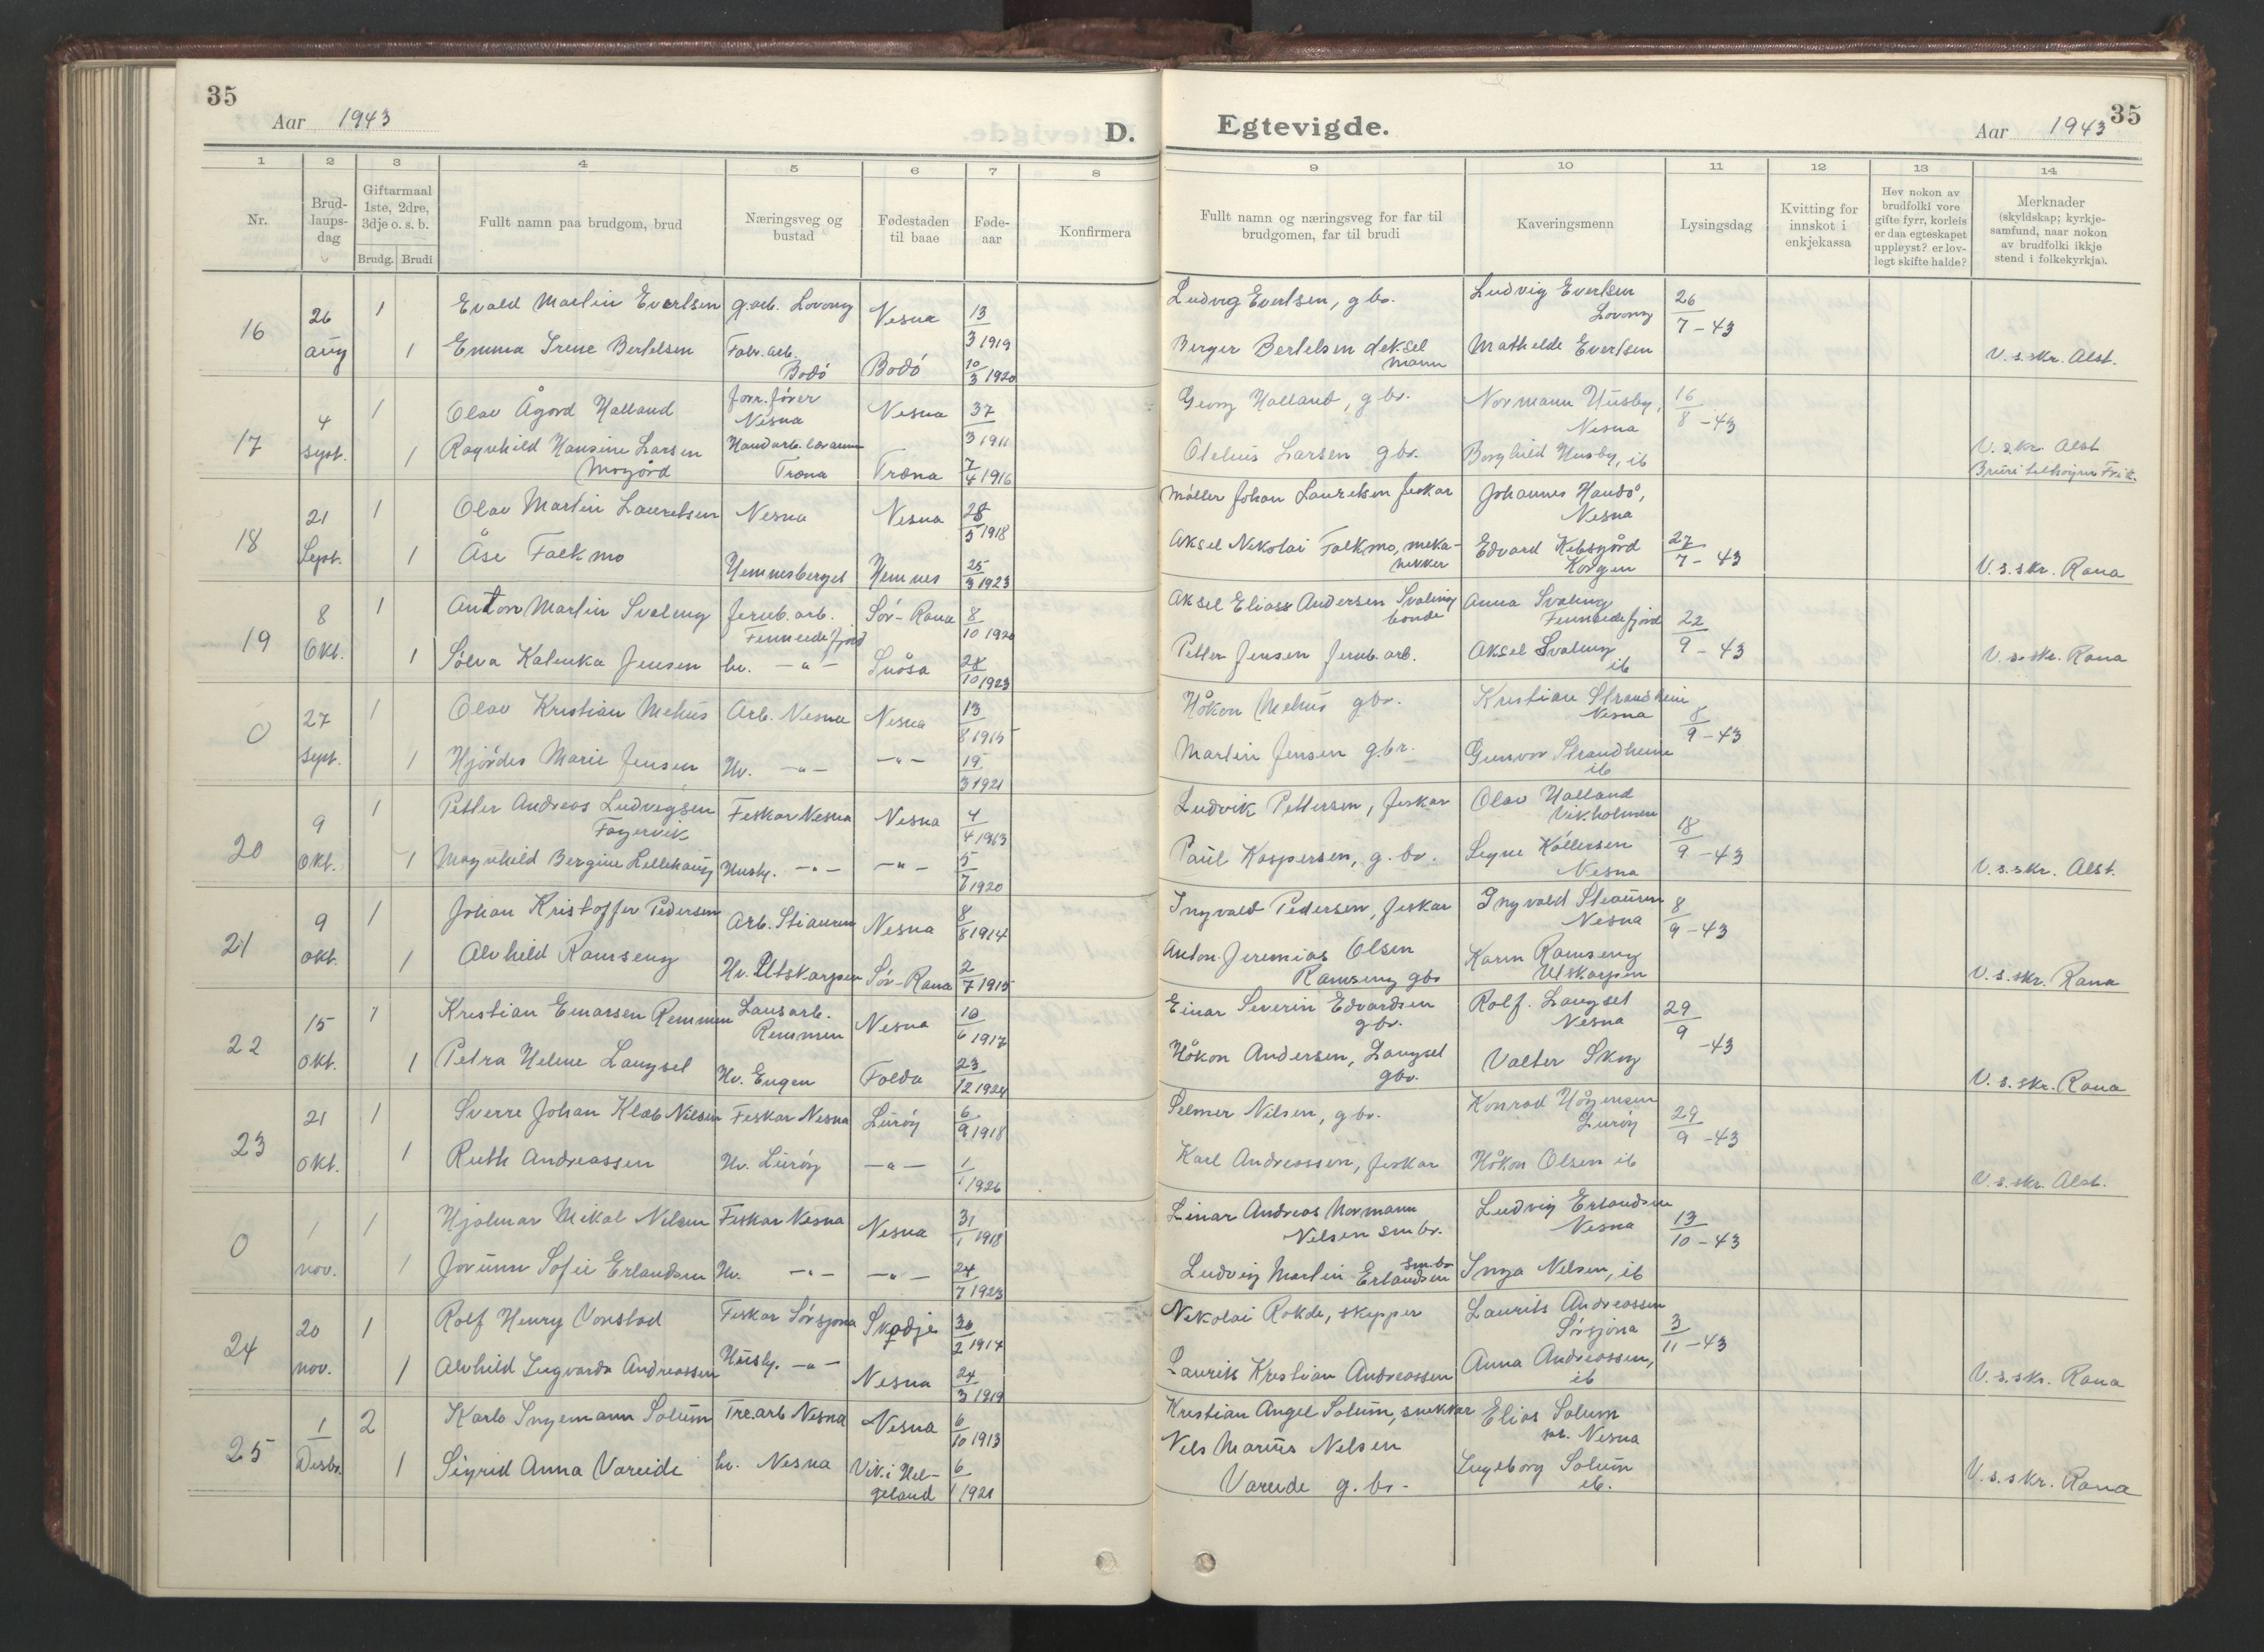 35
Aar 1943
D.
1 2 3 4 5 6 7 8
Nr.
Brud-
laups-
dag
Giftarmaal
1ste, 2dre,
3dje o. s. b.
Brudg. Brudi
Fullt namn paa brudgom, brud
Næringsveg og
bustad
Fødestaden
til baae
Føde-
aar
Konfirmera
16 26 aug 1 Evald Martin Evertsen g.arb. Lovong Nesna 13/3 1919
1 Emma Irene Bertelsen Fabr. arb. Bodö Bodö 10/3 1920
17 4 sept. 1 Olav Ågord Halland forr.förer Nesna Nesna 37/3 1911
1 Ragnhild Hansine Larsen Mogård Handarb. lærarinne Træna Træna 7/4 1916
18 21 Sept. 1 Olav Martin Lauritsen Nesna Nesna 28/5 1918
1 Åse Falkmo Hemnesberget Hemnes 25/3 1923
19 8 Okt. 1 Anton Martin Svaleng Jernb. arb. Finneidfjord Sör-Rana 8/10 1920
1 Sölva Kalinka Jensen hv. -"- Snåsa 28/10 1923
0 27 sept. 1 Olav Kristian Mehus Arb. Nesna Nesna 13/8 1915
1 Hjördis Marie Jensen Hv. -"- -"- 19/3 1921
20 9 Okt. 1 Petter Andreas Ludvigsen Fagervik Fiskar Nesna Nesna 4/4 1913
1 Magnhild Bergine Lillehaug Husly. -"- -"- 5/7 1920
21 9 okt. 1 Johan Kristoffer Pedersen Arb. Stiauren Nesna 8/8 1914
1 Alvhild Ramseng Hv. Utskarpen Sör-Rana 2/7 1915
22 15 Okt. 1 Kristian Einarsen Remmen Lausarb. Remmen Nesna 10/6 1917
1 Petra Helene Langset Hv. Engen Folda 23/12 1924
23 21 Okt. 1 Sverre Johan Klæb Nilsen Fiskar Nesna Luröy 6/9 1918
1 Ruth Andreassen Hv. Luröy -"- 1/1 1926
0 1 nov. 1 Hjalmar Mikal Nilsen Fiskar Nesna Nesna 31/1 1918
1 Jorunn Sofie Erlandsen Hv. -"- -"- 24/7 1923
24 20 nov. 1 Rolf Henry Vonstad Fiskar Sörsjona Skodje 20/2 1917
1 Alvhild Ingvarda Andreassen Husly. -"- Nesna 24/3 1919
25 1 Desbr. 2 Karlo Ingemann Solum Tre.arb Nesna Nesna 6/10 1913
1 Sigrid Anna Vareide hv. Nesna Vik i Helgeland 6/1 1921
Egtevigde.
Aar 1943
35
9 10 11 12 13 14
Fullt namn og næringsveg for far til
brudgomen, far til brudi
Kaveringsmenn
Lysingsdag
Kvitting for
innskot i
enkjekassa
Hev nokon av
brudfolki vore
gifte fyrr, korleis
er daa egteskapet
uppløyst? er lov-
legt skifte halde?
Merknader
(skyldskap; kyrkje-
samfund, naar nokon
av brudfolki ikkje
stend i folkekyrkja).
Ludvig Evertsen, gbr. Ludvig Evertsen Lovong 26/7 - 43
Berger Bertelsen deksel mann Mathilde Evertsen V. s. skr. Alst.
Georg Halland, gbr. Normann Husby, Nesna 16/8 - 43
Otelius Larsen gbr. Borghild Husby, ib V. s. skr. Alst
Möller Johan Lauritsen fiskar Johannes Handå, Nesna
Aksel Nikolai Falkmo, mekanikker Edvard Kibsgård Korgen 27/7 - 43 V. s. skr. Rana
Aksel Eliass Andersen Svaleng bonde Anna Svaleng Finneidfjord 22/9 - 43
Petter Jensen Jernb. arb. Aksel Svaleng ib V. s. skr. Rana
Håkon Mehus gbr. Kristian Strandheim Nesna 8/9 - 43
Martin Jensen g.br. Gunvor Strandheim ib
Ludvik Pettersen, fiskar Olav Halland Vikholmen 18/9 - 43
Paul Kaspersen, g. br. Signe Köllersen Nesna V. s. skr. Alst.
Ingvald Pedersen, fiskar Ingvald Stiauren Nesna 8/9 - 43
Anton Jeremias Olsen Ramseng gbr Karin Ramseng Utskarpen V. s. skr. Rana
Einar Severin Edvardsen gbr. Rolf Langset Nesna 29/9 - 43
Håkon Andersen, Langset gbr. Valter Skog V. s. skr. Rana
Selmer Nilsen, gbr. Konrad Hågensen Luröy 29/9 - 43
Karl Andreassen, fiskar Håkon Olsen ib V. s. skr. Alst.
Einar Andreas Normann Nilsen smbr. Ludvig Erlandsen Nesna 13/10 - 43
Ludvig Martin Erlandsen smbr Inga Nilsen, ib
Nikolai Rokde, skipper Laurits Andreassen Sörsjona 3/11 - 43
Laurits Kristian Andreassen Anna Andreassen, ib V. s. skr. Rana
Kristian Angel Solum, snekkar Elias Solum Nesna
Nils Marius Nilsen Vareide g. br. Ingeborg Solum ib. V. s. skr. Rana